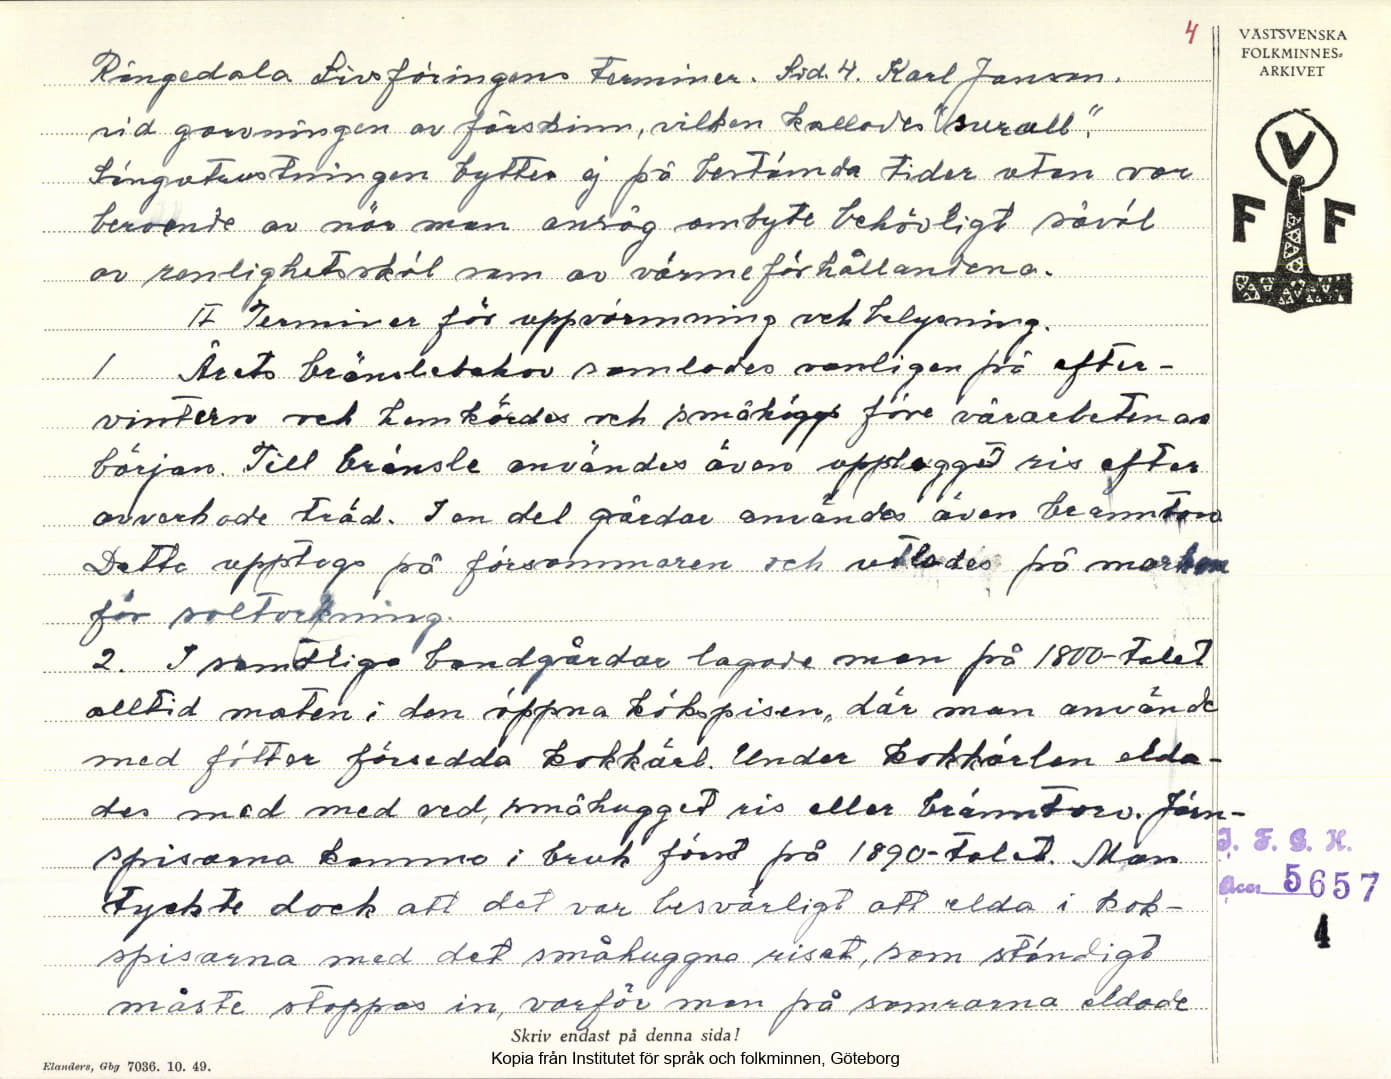 4
VÄSTSVENSKA
FOLKMINNES-
ARKIVET
V
F F
Ringedala Livsföringens Terminer. Sid. 4. Karl Janson.
vid garvningen av fårskinn, vilken kallades "surall".
Sängutrustningen byttes ej på bestämda tider utan var
beroende av när man ansåg ombyte behövligt såväl
av renlighetsskäl som av värmeförhållandena.
II Terminer för uppvärmning och belysning.
1 Årets bränslebehov samlades vanligen på efter-
vintern och hemkördes och småhöggs före vårarbetenas
början. Till bränsle användes även upplagget ris efter
avverkade träd. I en del gårdar användes även bränntorv
Detta upptogs på försommaren och utlades på marken
för soltorkning.
2. I samtliga bondgårdar lagade man på 1800-talet
alltid maten i den öppna kökspisen, där man använde
med fötter försedda kokkärl. Under kokkärlen elda-
des med med ved, småhugget ris eller bränntorv. Järn-
spisarna kommo i bruk först på 1890-talet. Man
tyckte dock att det var besvärligt att elda i kok-
spisarna med det småhuggna riset, som ständigt
måste stoppas in, varför man på somrarna eldade
I. F. G. H.
Acc. 5657
4
Skriv endast på denna sida!
Kopia från Institutet för språk och folkminnen, Göteborg
Elanders, Gbg 7036. 10. 49.